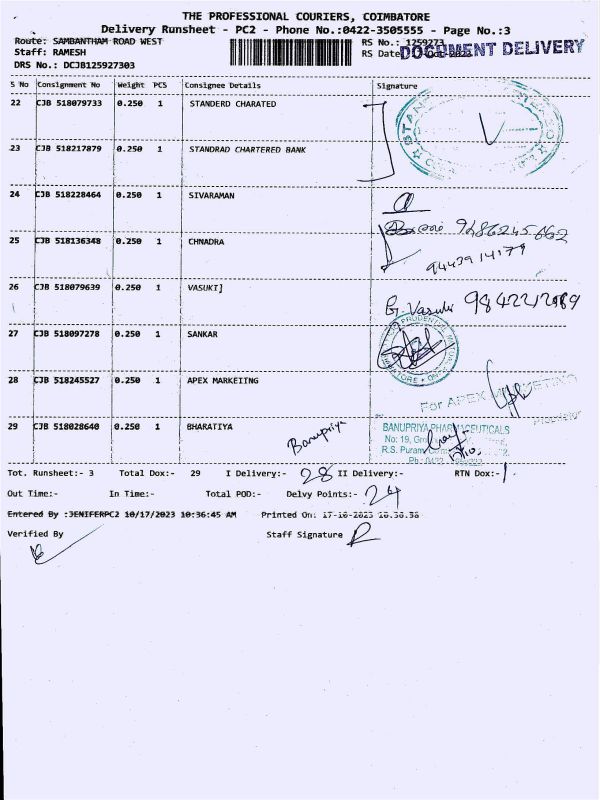 THE PROFESSIONAL COURIERS, COIMBATORE
Delivery Runsheet - PC2 - Phone No.:0422-3505555 - Page No.:3
Route: SAMBANTHAM ROAD WEST RS No.: 1259273
Staff: RAMESH RS Date DOCUMENT DELIVERY
DRS No.: DCJB125927303
S No Consignment No Weight PCS Consignee Details Signature
22 CJB 518079733 0.250 1 STANDERD CHARATED
23 CJB 518217879 0.250 1 STANDRAD CHARTERED BANK
24 CJB 518228464 0.250 1 SIVARAMAN
25 CJB 518136348 0.250 1 CHNADRA
9443914177
26 CJB 518079639 0.250 1 VASUKI]
G. Vasuki
27 CJB 518097278 0.250 1 SANKAR
28 CJB 518245527 0.250 1 APEX MARKEIING
For APEX MARKETING
Proprietor
29 CJB 518028640 0.250 1 BHARATIYA Banupriya
BANUPRIYA PHARMACEUTICALS
No: 19,
R.S. Puram
Tot. Runsheet:- 3 Total Dox:- 29 I Delivery:- 28 II Delivery:- RTN Dox:- 1
Out Time:- In Time:- Total POD:- Delvy Points:- 24
Entered By :JENIFERPC2 10/17/2023 10:36:45 AM Printed On: 17-10-2023 10.36.56
Verified By Staff Signature